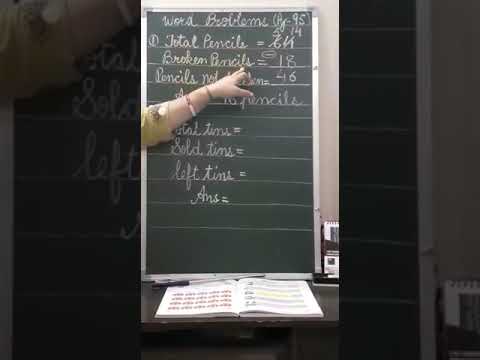 Word Problems (Pg-95)
5 14
① Total Pencils = 64
Broken Pencils = (-) 18
Pencils not = 46
pencils
Total tins =
Sold tins =
left tins =
Ans =